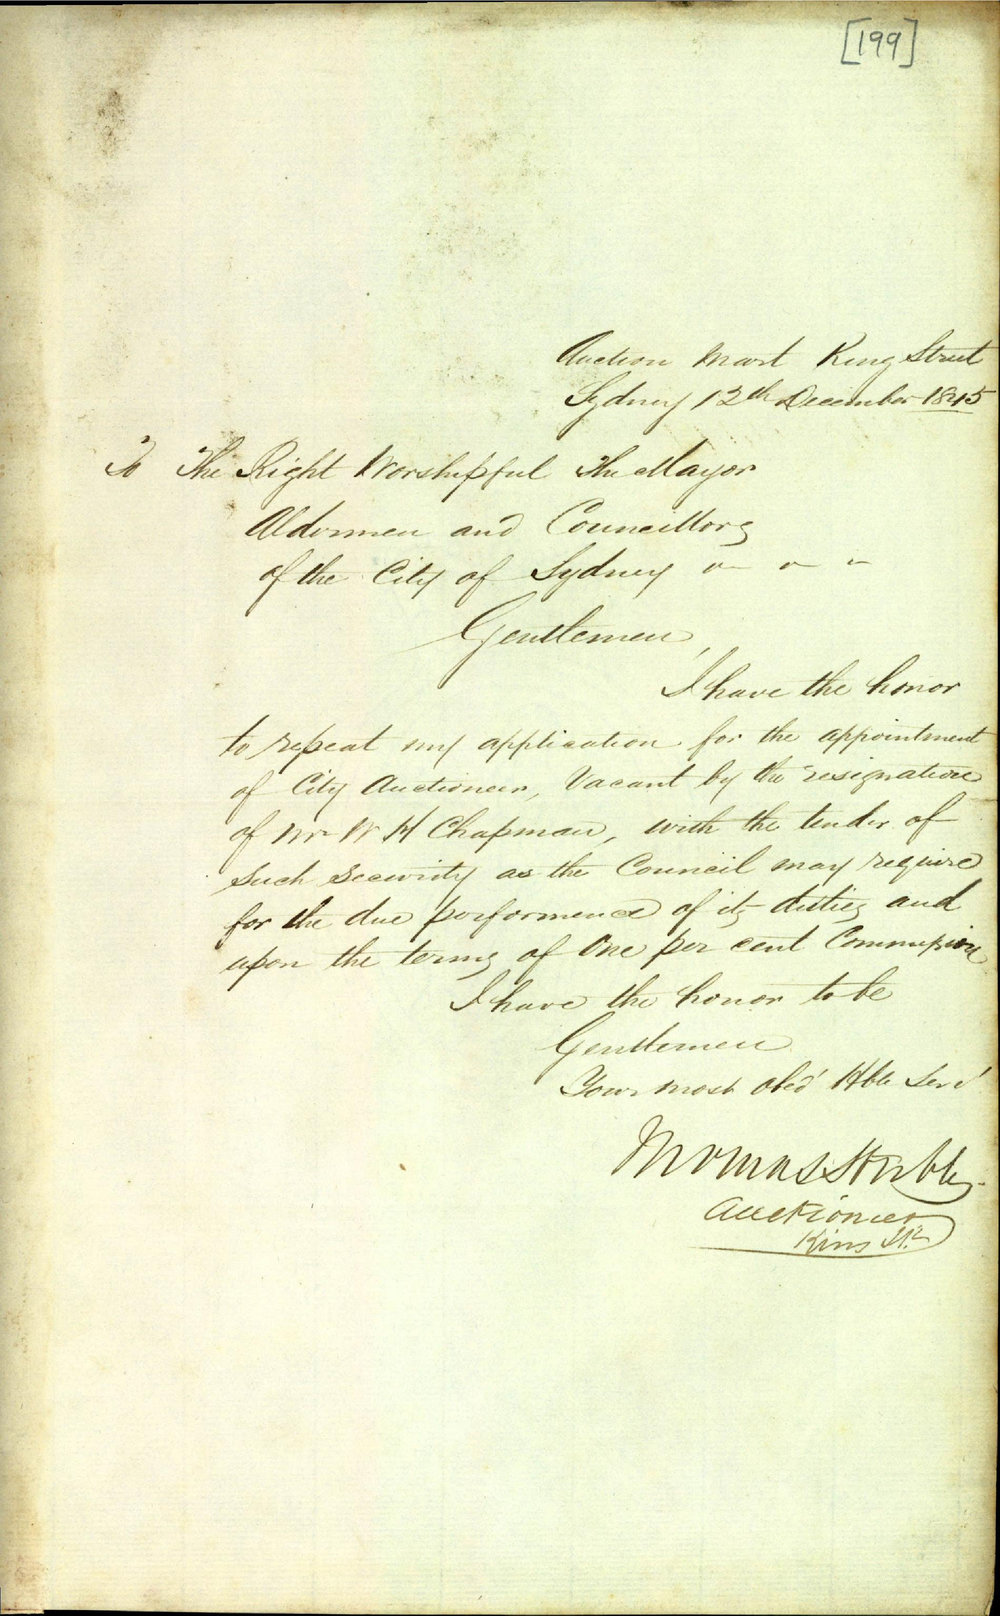 [199]
Auction Mart King Street
Sydney 12th December 1845
To The Right Worshipful The Mayor
Aldermen and Councillors
of the City of Sydney
Gentlemen,
I have the honor
to repeat my application for the appointment
of City Auctioneer, Vacant by the resignation
of Mr W H Chapman, with the tender of
such security as the Council may require
for the due performence of its duties and
upon the terms of One per cent Commission
I have the honor to be
Gentlemen
Your most obed' Hble Serv'
Thomas Stubbs
Auctioneer
King St.